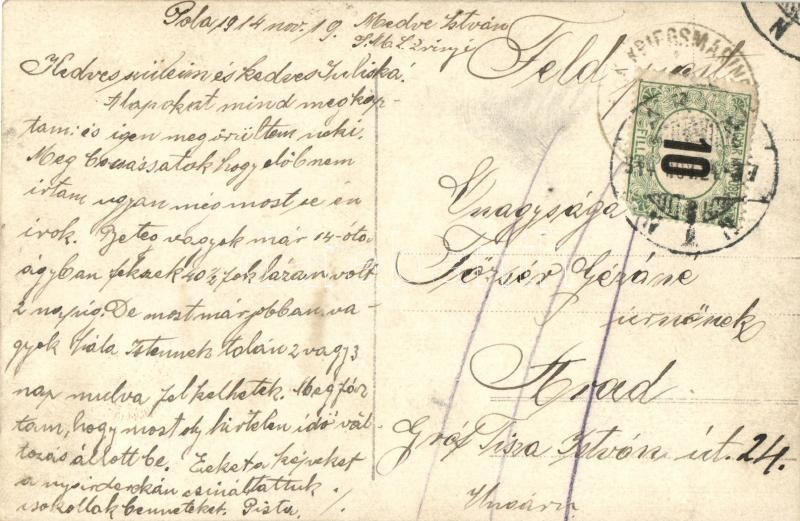 Pola 1914 nov. 19. Medve István
S.M.S. Zrinyi
Kedves szüleim és kedves Juliska!
A lapokat mind megkap-
tam: és igen megörültem neki.
Meg bocsássatok hogy előb nem
irtam ugyan még most se én
irok. Beteg vagyok már 14-óta
ágyban fekszek 40 fok lázam volt
2 napig. De most már jobban va-
gyok hála Istennek talán 2 vagy 3
nap mulva fel kelhetek. Megfáz-
tam, hogy most ily hirtelen idő vál-
tozás állott be. Ezeket a képeket
a nyirderekán csináltattuk
csokollak benneteket. Pista.
Feldpost
KRIEGSMARINE
10
FILLÉR
Őnagysága
Tőzsér Gézáné
úrnőnek
Arad
Gróf Tisza István út. 24.
Ungarn